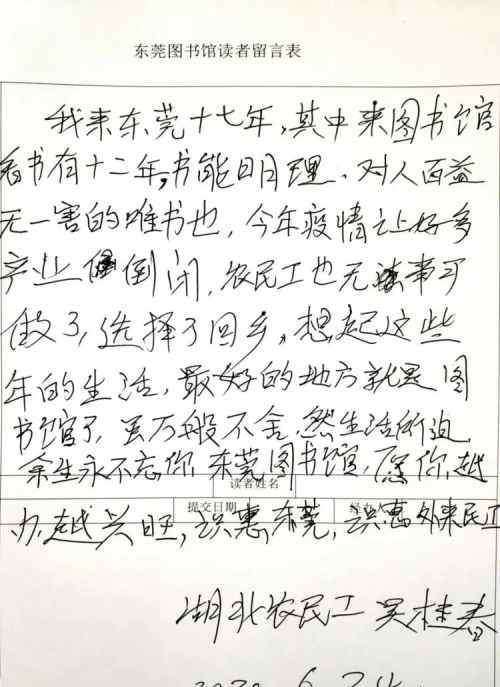 东莞图书馆读者留言表
我来东莞十七年,其中来图书馆
看书有十二年,书能明理、对人百益
无一害的唯书也,今年疫情让好多
产业倒闭,农民工也无事可
做了,选择了回乡。想起这些
年的生活,最好的地方就是图
书馆了,虽万般不舍,然生活所迫
余生永不忘你,东莞图书馆,愿你越
读者姓名
提交日期
办越兴旺,识惠东莞,识惠外来民工
湖北农民工 吴桂春
2020. 6. 24